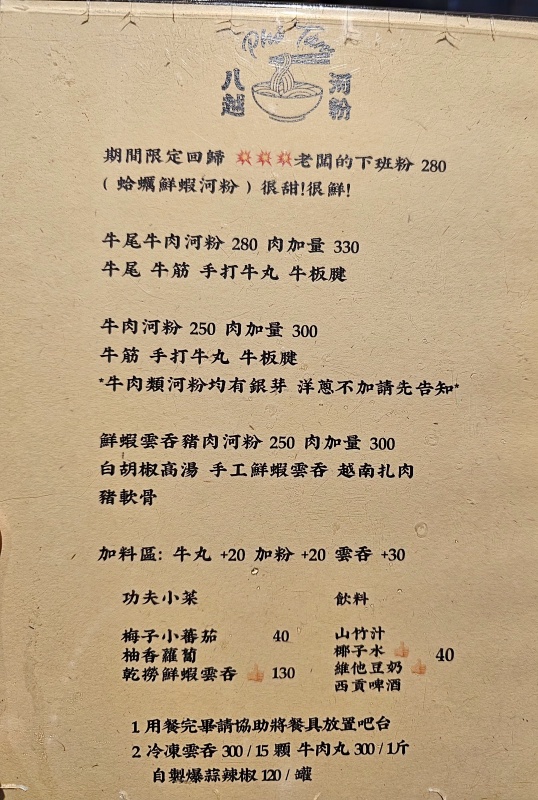 Pho Tam
八越 河粉
期間限定回歸 💥💥💥老闆的下班粉 280
( 蛤蠣鮮蝦河粉 ) 很甜!很鮮!
牛尾牛肉河粉 280 肉加量 330
牛尾 牛筋 手打牛丸 牛板腱
牛肉河粉 250 肉加量 300
牛筋 手打牛丸 牛板腱
*牛肉類河粉均有銀芽 洋蔥不加請先告知*
鮮蝦雲吞豬肉河粉 250 肉加量 300
白胡椒高湯 手工鮮蝦雲吞 越南扎肉
豬軟骨
加料區: 牛丸 +20 加粉 +20 雲吞 +30
功夫小菜
梅子小蕃茄 40
柚香蘿蔔
乾撈鮮蝦雲吞 👍 130
飲料
山竹汁
椰子水 👍 40
維他豆奶 👍
西貢啤酒
1 用餐完畢請協助將餐具放置吧台
2 冷凍雲吞 300 / 15 顆 牛肉丸 300 / 1斤
自製爆蒜辣椒 120 / 罐